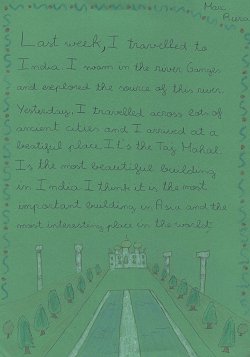 Mar
Last week, I travelled to
India. I swam in the river Ganges
and explored the source of this river.
Yesterday, I travelled across lots of
ancient cities and I arrived at a
beatiful place. It's the Taj Mahal.
Is the most beautiful building
in India. I think it is the most
important building in Asia and the
most interesting place in the world.